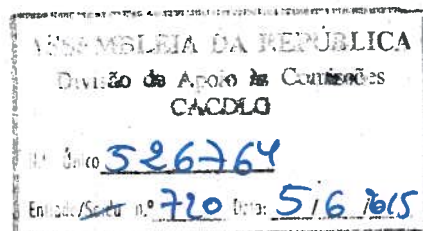 ASSEMBLEIA DA REPÚBLICA
Divisão de Apoio às Comissões
CACDLG
N.º Único 526764
Entrada/Saída n.º 720 Data: 5/6/2015